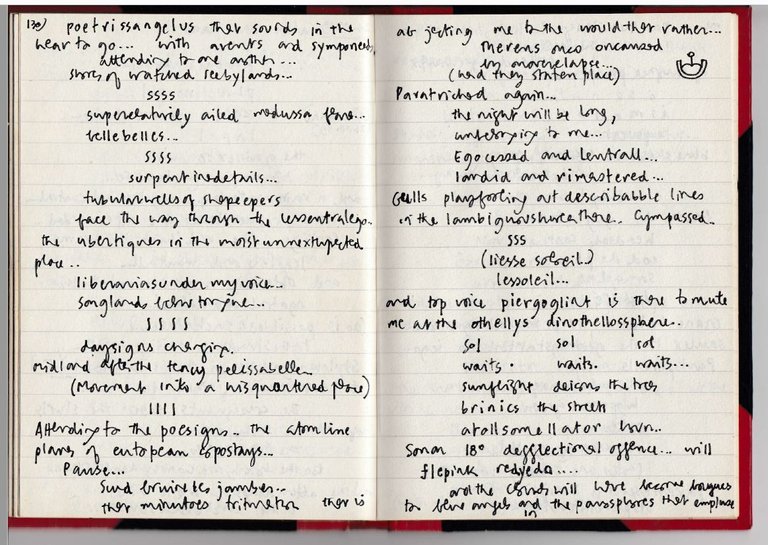 130) poetrissangelus ther sounds in the
near to go... with avents and symponents
attending to one another...
shores of watched seebylands...
ssss
superelaturily ailed medussa flare...
bellebelles...
ssss
surpentinedetails...
tubularwells of shepeepers
face the way through the
the ubertiques in the most unnextupected
place..
liberariasunder my voice...
songlands below tongue...
ssss
daysigns changing.
midland after the tency pelissabellen
(Movement into a nisquartered place)
llll
Attending to the poesigns.. the atomline
planes of eutopean topostays...
Pause...
Sund bruinetes jamber...
ther minutoes trituration ther is
ab jecting me to the would ther rather...
therens onco oncaused
by morerelapse...
(had they staten place)
Paratriched again...
the night will be long,
undenying to me...
Egocessed and lentrall...
landid and rimastered...
Gulls playfooling out describabble lines
in the there.. Cympassed..
sss
(liesse soleeil..)
lessoleil...
and top voice piergogliat is there to mute
me at the othellys dinothellossphere..
sol sol sol
waits. waits. waits...
sunflight deigns the tres
brinics the street
atollsomellator
Sonan 18° degglectional offence... will
flepink redyeda....
and the clouds will have become
to blue angels and the parasphores that emplose